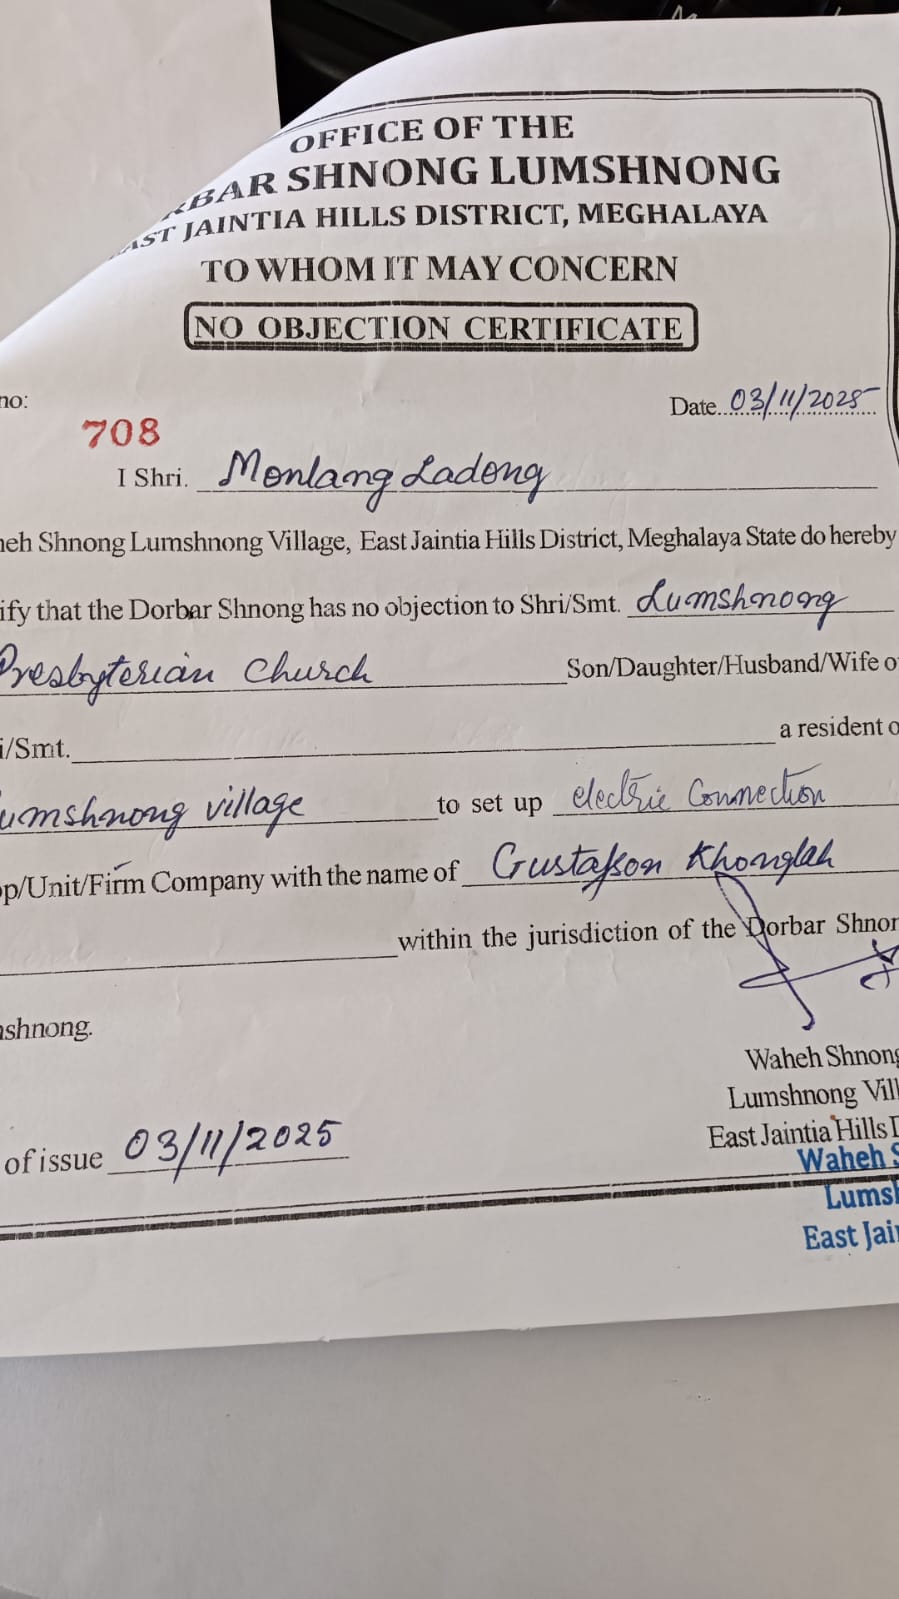 OFFICE OF THE
RBAR SHNONG LUMSHNONG
AST JAINTIA HILLS DISTRICT, MEGHALAYA
TO WHOM IT MAY CONCERN
NO OBJECTION CERTIFICATE
no:
Date 03/11/2025
708
I Shri. Monlang Ladong
heh Shnong Lumshnong Village, East Jaintia Hills District, Meghalaya State do hereby
ify that the Dorbar Shnong has no objection to Shri/Smt. Lumshnong
Presbyterian Church Son/Daughter/Husband/Wife o
i/Smt. a resident o
umshnong village to set up electric Connection
op/Unit/Firm Company with the name of Gustafson Khonglah
within the jurisdiction of the Dorbar Shnon
mshnong.
Waheh Shnong
Lumshnong Vill
of issue 03/11/2025
East Jaintia Hills D
Waheh S
Lumsh
East Jain